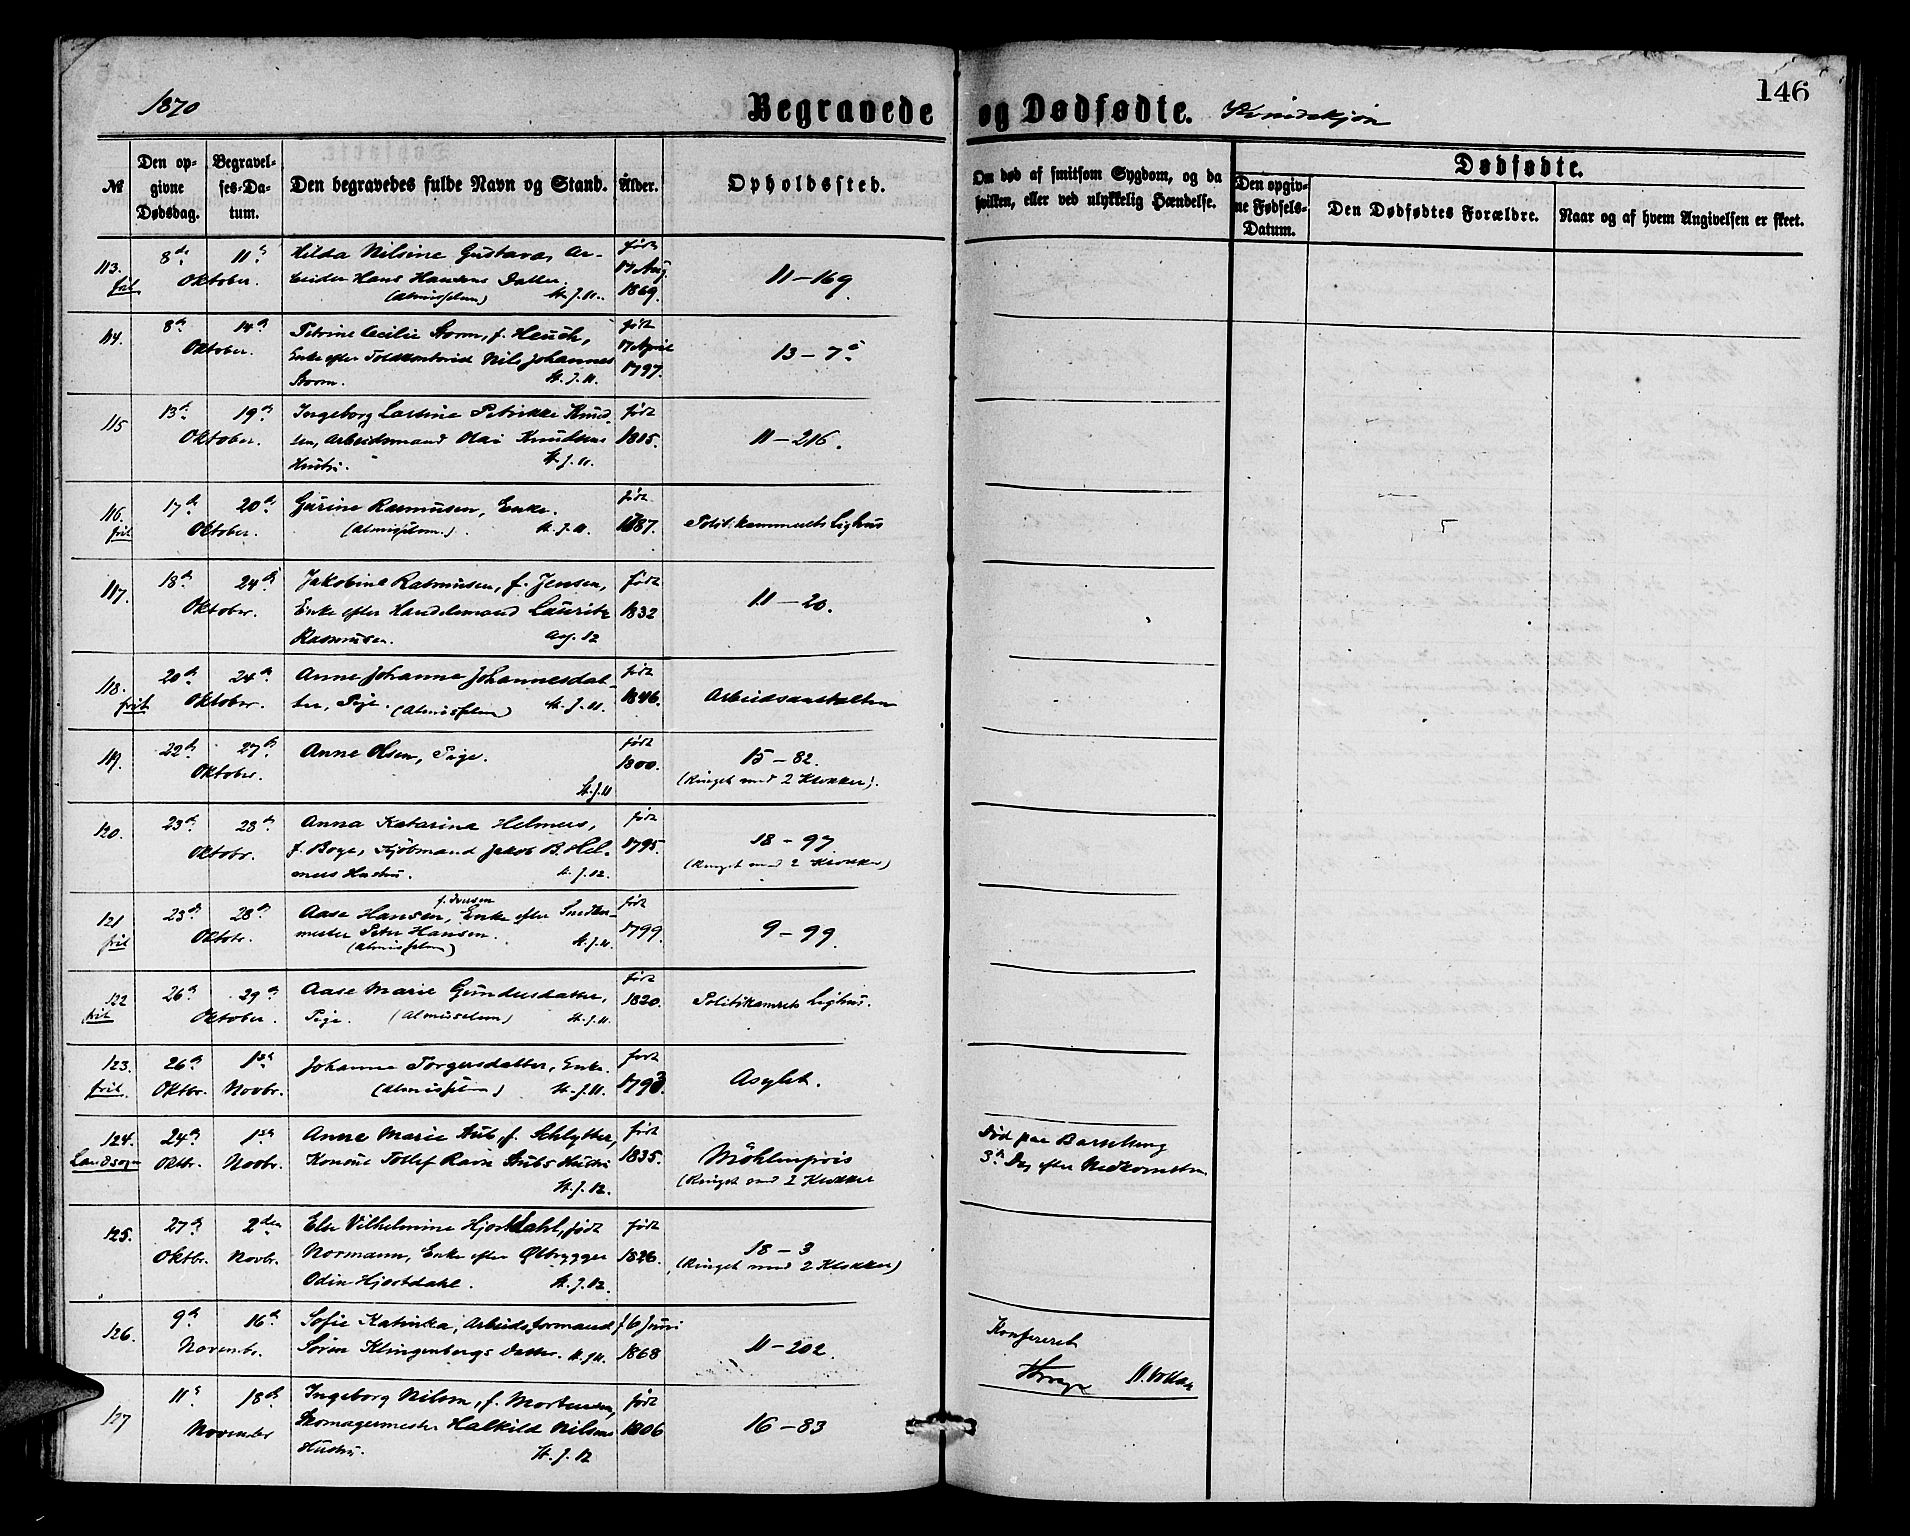 1870
Begravede og Dødfødte. Kvindekjøn
146
№
Den opgivne Dødsdag.
Begravelses-Datum.
Den begravedes fulde Navn og Stand.
Alder.
Opholdssted.
Om død af smitsom Sygdom, og da hvilken, eller ved ulykkelig Hændelse.
Dødfødte.
Den opgivne Fødsels-Datum.
Den Dødfødtes Forældre.
Naar og af hvem Angivelsen er skeet.
113. frit 8de 11te Oktober.
Hilda Nilsine Gustava, Ar-
beider Hans Hansens Datter
(Almisselem) St. J. 11.
født 17 Aug. 1869.
11-169.
114. 8de 14de Oktober.
Petrine Cecilie Storm, f. Heuch,
Enke efter Toldkontorist Nils Johannes
Storm. St. J. 11.
født 17 April 1797.
13-7
115 13de 19de Oktober.
Ingeborg Lastine Petrikke Knud-
sen, Arbeidsmand Olai Knudsens
Hustru. St. J. 11.
født 1805.
11-216.
116. frit 17de 20de Oktober.
Gurine Rasmusen, Enke.
(Almisselem.) St. J. 11.
født 1787.
Politikammerets Lighus
117. 18de 24de Oktober.
Jakobine Rasmusen, f. Jensen,
Enke efter Handelsmand Lauritz
Rasmusen. 12
født 1832
11-20.
118. frit 20de 24de Oktober.
Anne Johanna Johannesdat-
ter, Pige. (Almisselem) St. J. 11.
født 1846.
Arbeidsanstalten
119. 22de 27de Oktober.
Anne Olsen, Pige.
St. J. 11
født 1800.
15-82.
(Ringet med 2 Klokker).
120. 23de 28de Oktobr.
Anna Katarina Helmers,
f. Boye, Kjøbmand Jakob B. Hel-
mers Hustru. St. J. 12.
født 1795.
18-97
(Ringet med 2 Klokker)
121 frit 23de 28de Oktobr.
f. Iversen
Aase Hansen, Enke efter Snedker-
mester Peter Hansen.
(Almisselem) St. J. 11.
født 1799.
9-99.
122 frit 26de 29de Oktober.
Aase Marie Gundersdatter,
Pige. (Almisselem) St. J. 11.
født 1820.
Politikamrets Lighus.
123. frit 26de Oktbr. 1ste Novbr.
Johanna Torgersdatter, Enke.
(Almisselem) St. J. 11.
født 1793.
Asylet.
124. Landsogn 24de Oktbr. 1ste Novbr.
Anne Marie Aub, f. Schlytter,
Konsul Tollef Ravn Aubs Hustru
St. J. 12.
født 1835.
Möhlenpris
(Ringet med 2 Klokker
Død paa Barselseng
3de Dag efter Nedkomsten
125. 27de Oktbr. 2den Novbr.
Else Vilhelmine Hjortdahl, født
Normann, Enke efter Ølbrygger
Odin Hjortdahl. St. J. 12.
født 1826.
18-3
(Ringet med 2 Klokker)
126. 9de 16de Novembr.
Sofie Katinka, Arbeidsformand
Søren Klingenbergs Datter. St. J. 11.
f 6 Juni 1868
11-202.
Konfereret
127 11te 18de November
Ingeborg Nilsen, f. Mortensen,
Skomagermester Halkild Nilsens
Hustru. St. J. 12
født 1806
16-83